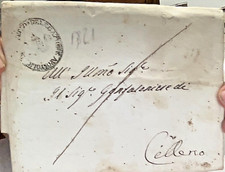 1321
All' Ill͞mo Sig.
Il Sig.r Gonfaloniere di
Celleno